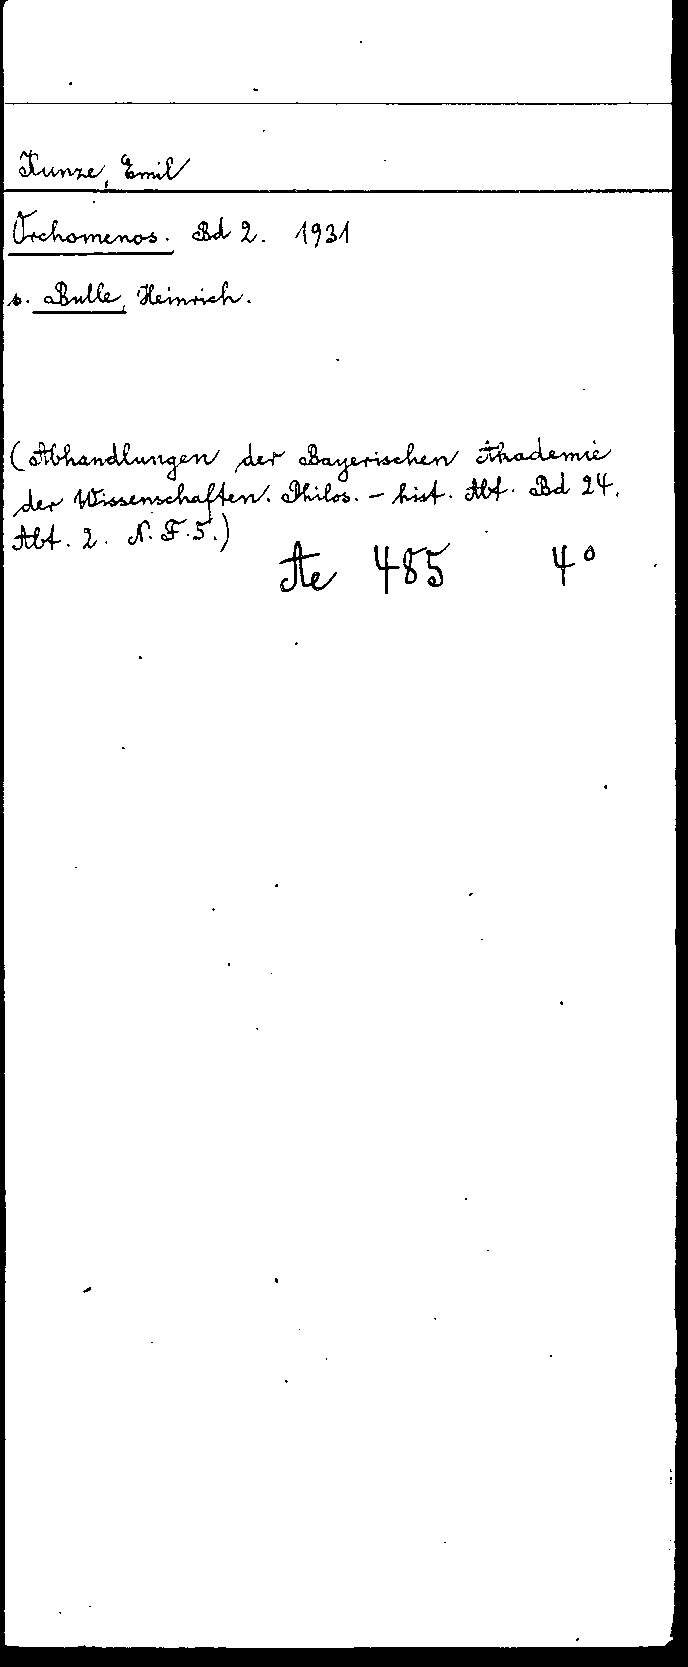 Kunze, Emil
Orchomenos. Bd 2. 1931
s. Bulle, Heinrich.
(Abhandlungen der Bayerischen Akademie
der Wissenschaften. Philos. - hist. Abt. Bd 24.
Abt. 2. N. F. 5.)
Ae 485 4°